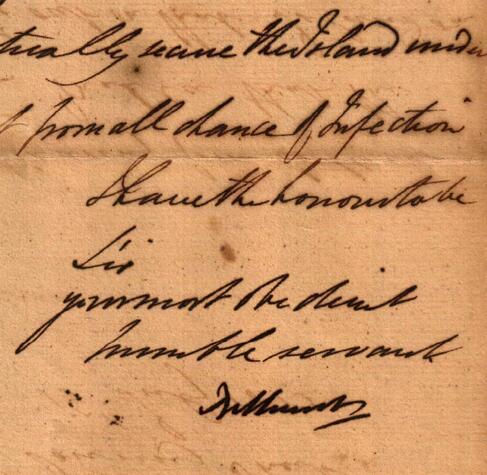 tually secure the Island under
from all chance of Infection
I have the honour to be
Sir
your most Obedient
humble servant
Bathurst